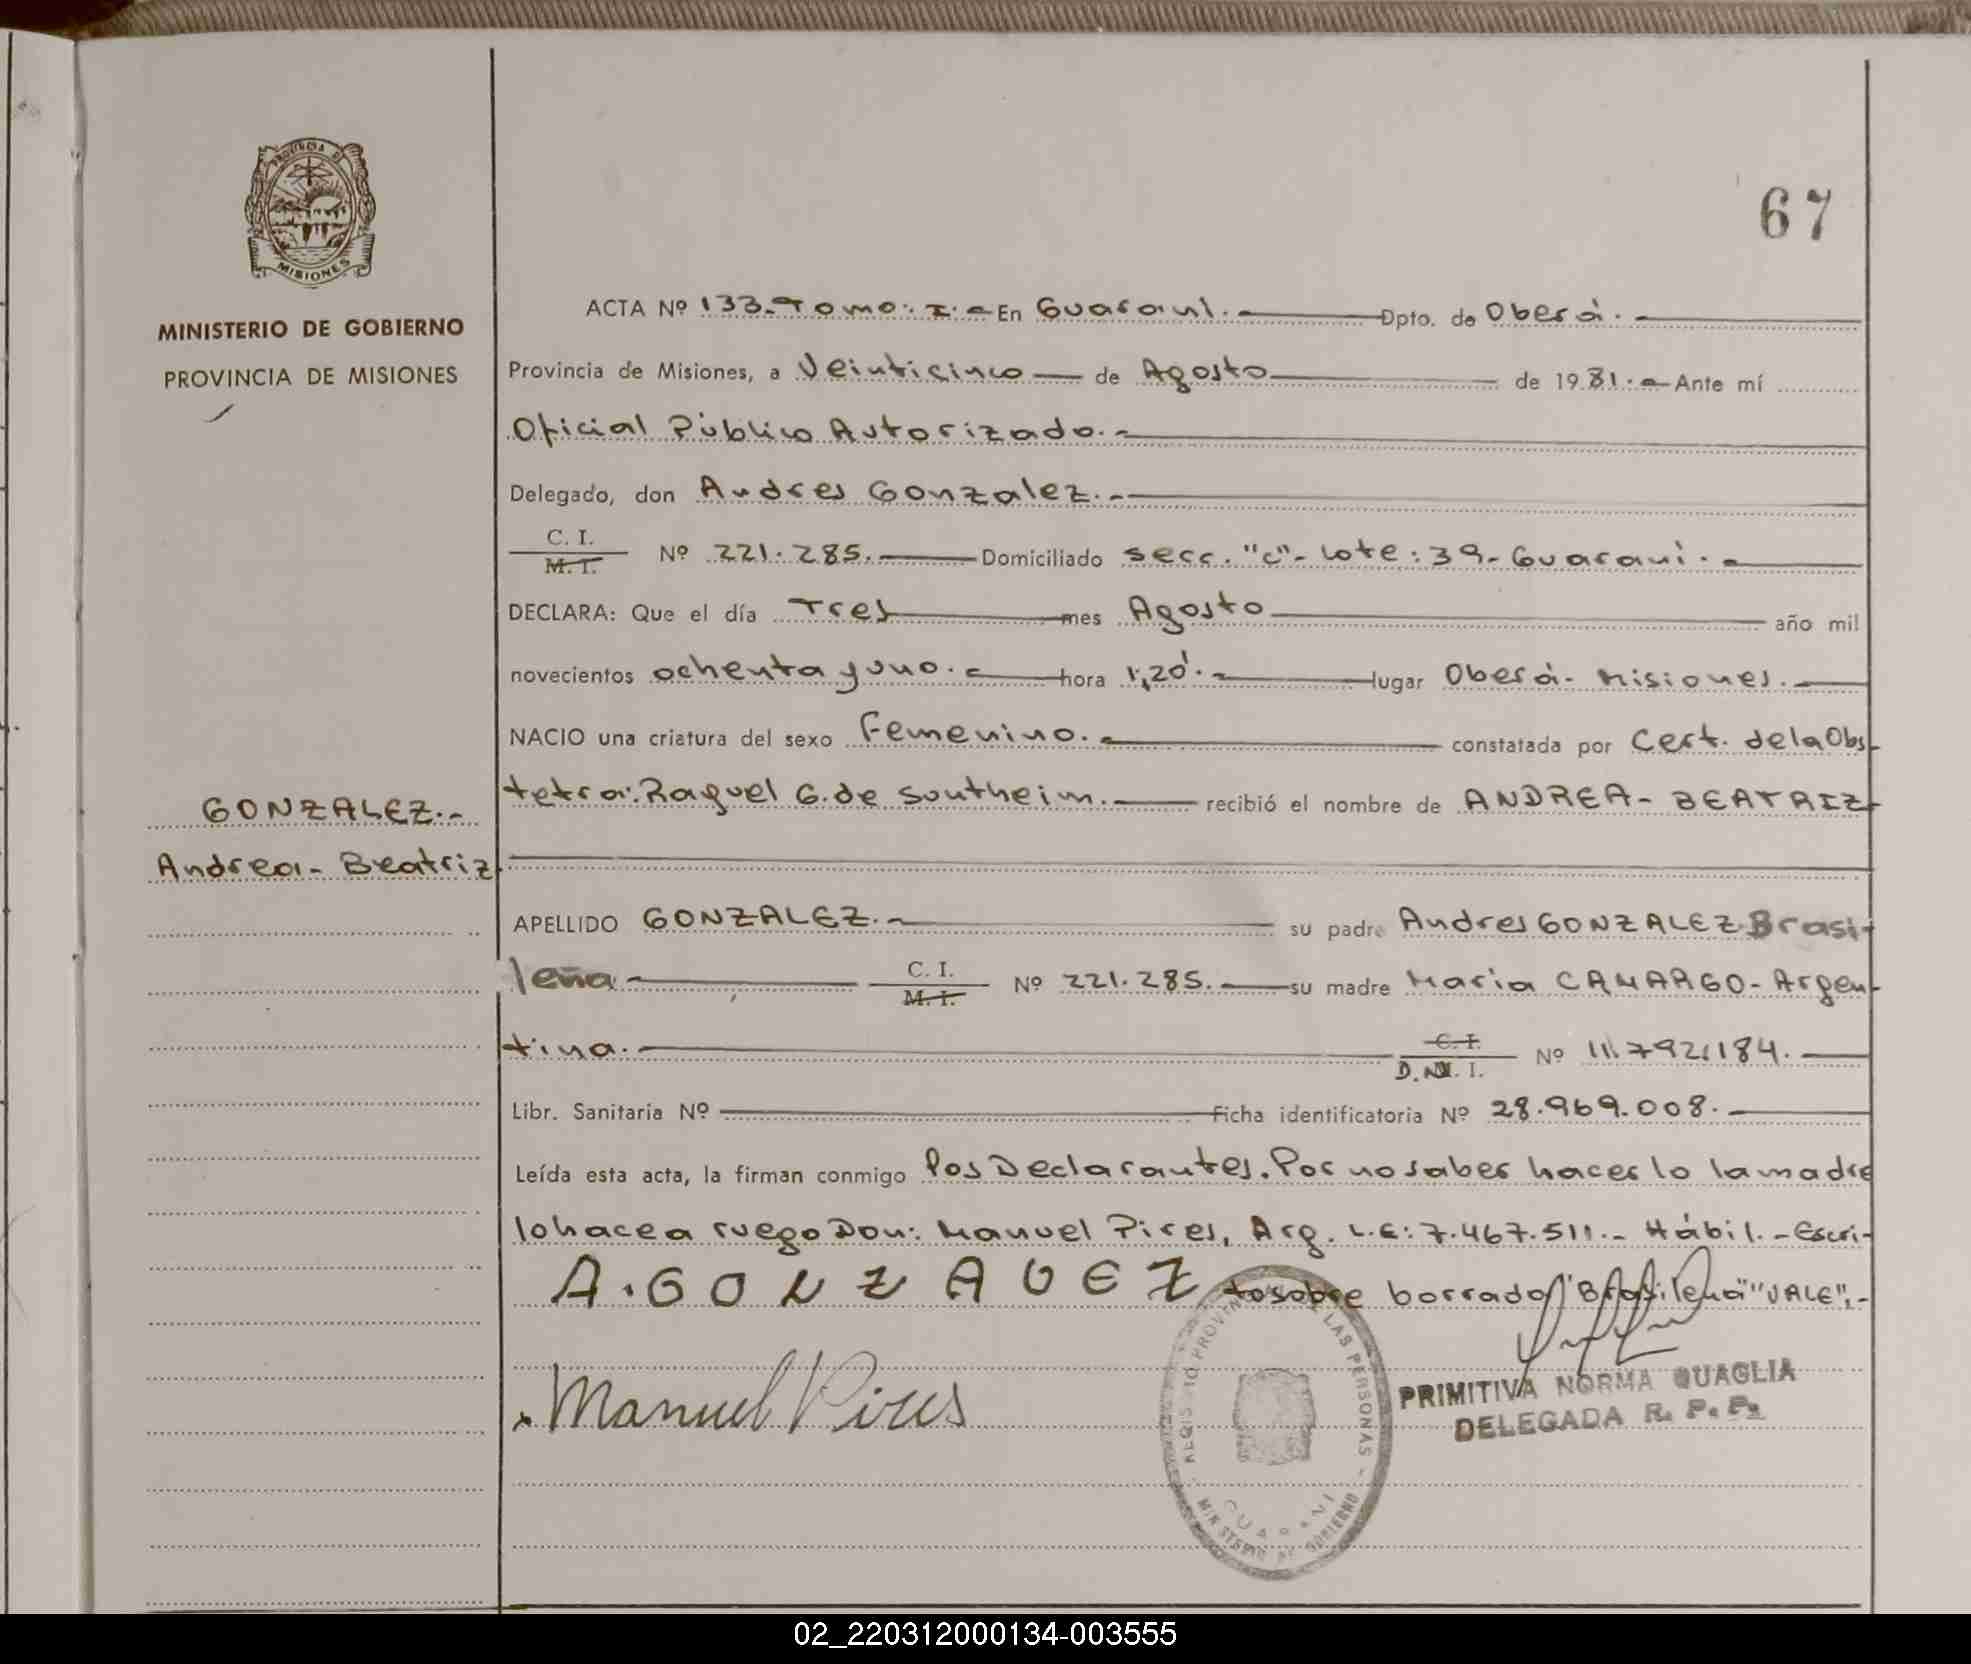 67
PROVINCIA DE
MISIONES
MINISTERIO DE GOBIERNO
PROVINCIA DE MISIONES
ACTA Nº 133.-Tomo: I.- En Guaraní.- Dpto. de Oberá.-
Provincia de Misiones, a Veinticinco de Agosto de 1981.- Ante mí
Oficial Público Autorizado.-
Delegado, don Andres Gonzalez.-
C. I.
M. I. Nº 221.285. Domiciliado secc. "C"- Lote: 39- Guaraní.-
DECLARA: Que el día Tres mes Agosto año mil
novecientos ochenta y uno.- hora 1,20'.- lugar Oberá- Misiones.-
NACIO una criatura del sexo Femenino.- constatada por Cert. de la Obs-
tetra: Raquel G. de Southeim.- recibió el nombre de ANDREA- BEATRIZ-
GONZALEZ.-
Andrea- Beatriz.
APELLIDO GONZALEZ.- su padre Andres GONZALEZ- Brasi-
leña C. I.
M. I. Nº 221.285.- su madre Maria CAMARGO- Argen-
tina.- C. I.
D.N. I. Nº 11.792.184.-
Libr. Sanitaria Nº Ficha identificatoria Nº 28.969.008.-
Leída esta acta, la firman conmigo los Declarantes. Por no saber hacerlo la madre
lo hace a ruego Don: Manuel Pires, Arg. L.E: 7.467.511.- Hábil.- Escri-
to sobre borrado "Brasileña" "VALE".-
A. GONZALEZ
Manuel Pires
REGISTRO PROVINCIAL DE LAS PERSONAS
GUARANI
MINISTERIO DE GOBIERNO
PRIMITIVA NORMA QUAGLIA
DELEGADA R. P. P.
02_220312000134-003555